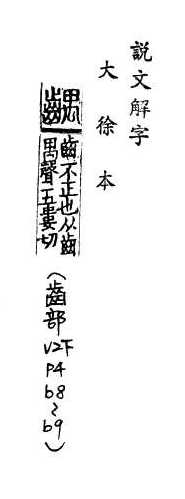 說文解字
大徐本
齵
齒不正也从齒
禺聲五婁切
(齒部
V2下
P4
b8
~
b9)